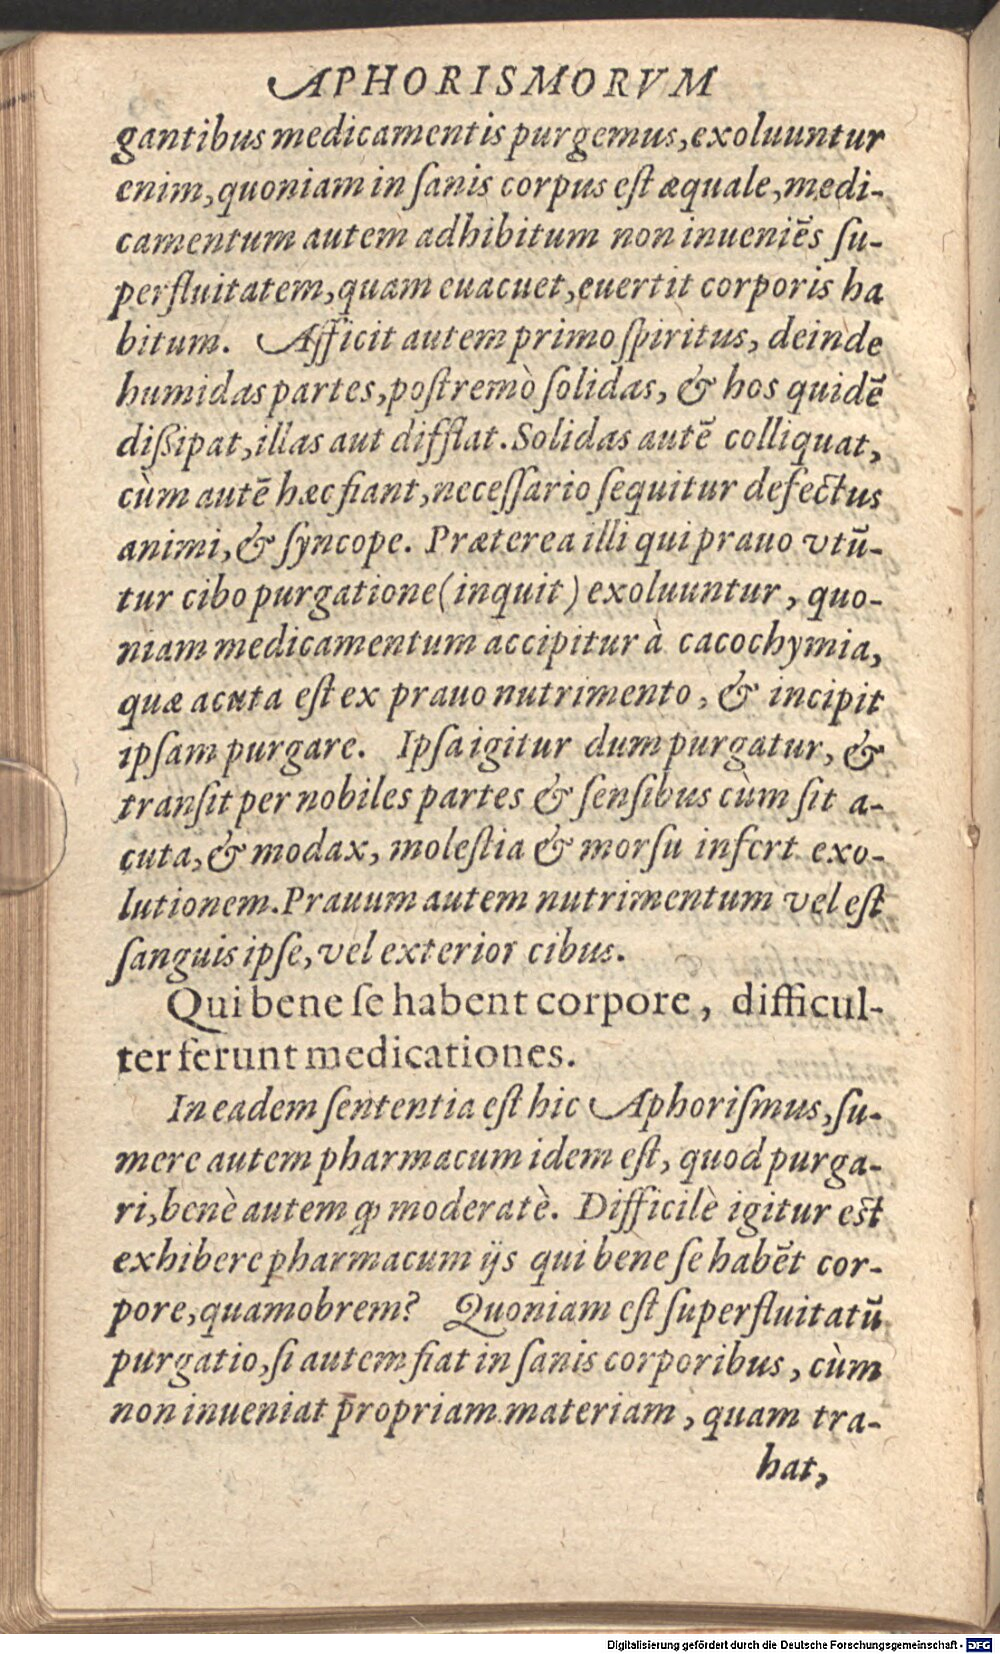 APHORISMORVM
gantibus medicamentis purgemus, exoluuntur
enim, quoniam in ſanis corpus eſt æquale, medi-
camentum autem adhibitum non inueniẽs ſu-
perfluitatem, quam euacuet, euertit corporis ha
bitum. Afficit autem primo ſpiritus, deinde
humidas partes, poſtremò ſolidas, & hos quidẽ
diſsipat, illas aut difflat. Solidas autẽ colliquat,
cùm autẽ hæc fiant, neceſſario ſequitur defectus
animi, & ſyncope. Præterea illi qui prauo vtũ-
tur cibo purgatione (inquit) exoluuntur, quo-
niam medicamentum accipitur à cacochymia,
quæ acuta eſt ex prauo nutrimento, & incipit
ipſam purgare. Ipſa igitur dum purgatur, &
tranſit per nobiles partes & ſenſibus cùm ſit a-
cuta, & modax, moleſtia & morſu infert exo-
lutionem. Prauum autem nutrimentum vel eſt
ſanguis ipſe, vel exterior cibus.
Qui bene ſe habent corpore, difficul-
ter ferunt medicationes.
In eadem ſententia eſt hic Aphoriſmus, ſu-
mere autem pharmacum idem eſt, quod purga-
ri, benè autem ꝙ moderatè. Difficilè igitur eſt
exhibere pharmacum ijs qui bene ſe habẽt cor-
pore, quamobrem? Quoniam eſt ſuperfluitatũ
purgatio, ſi autem fiat in ſanis corporibus, cùm
non inueniat propriam materiam, quam tra-
hat,
Digitalisierung gefördert durch die Deutsche Forschungsgemeinschaft - DFG